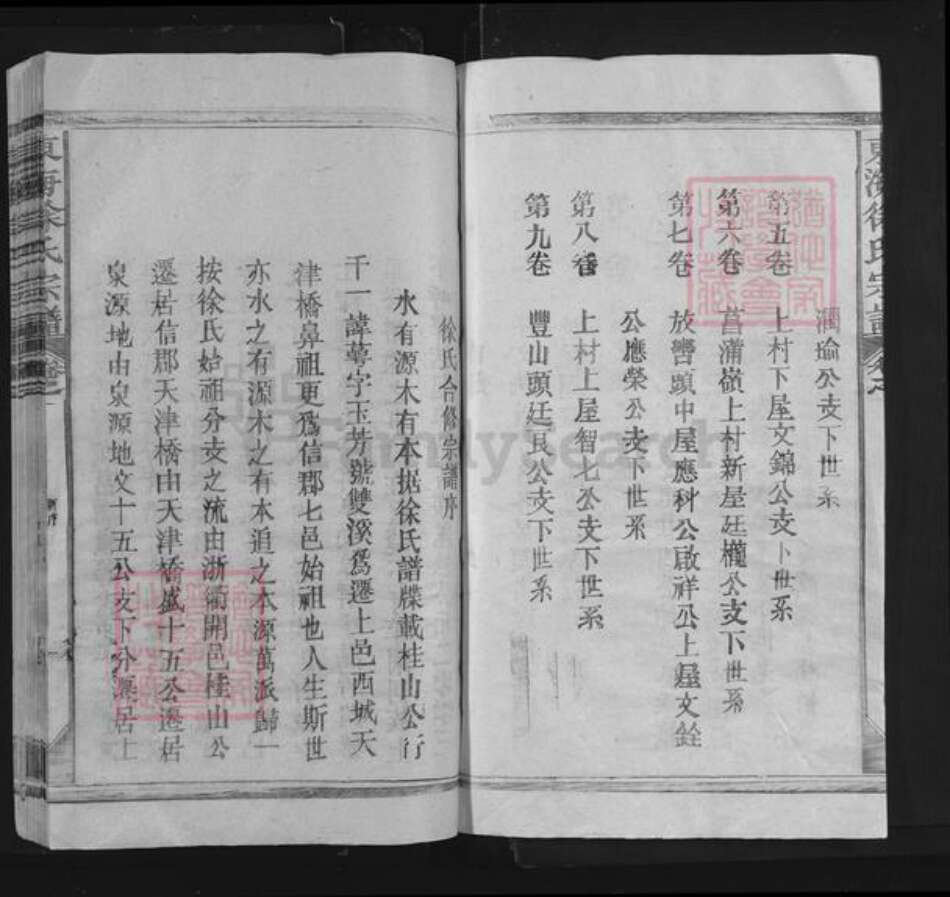 東海徐氏宗譜
潤瑜公支下世系
第五卷　上村下屋文錦公支下世系
第六卷　菖蒲嶺上村新屋廷權公支下世系
第七卷　放轡頭中屋應科公啟祥公上屋文銓
公應榮公支下世系
第八卷　上村上屋智七公支下世系
第九卷　豐山頭廷良公支下世系
徐氏合修宗譜序
水有源木有本据徐氏譜牒載桂山公行
千一諱蕚字玉芳號雙溪爲遷上邑西城天
津橋鼻祖更爲信郡七邑始祖也人生斯世
亦水之有源木之有本追之本源萬派歸一
按徐氏始祖分支之流由浙衢開邑桂山公
遷居信郡天津橋由天津橋盛十五公遷居
泉源地由泉源地文十五公支下分遷居上
東海徐氏宗譜
FamilySearch